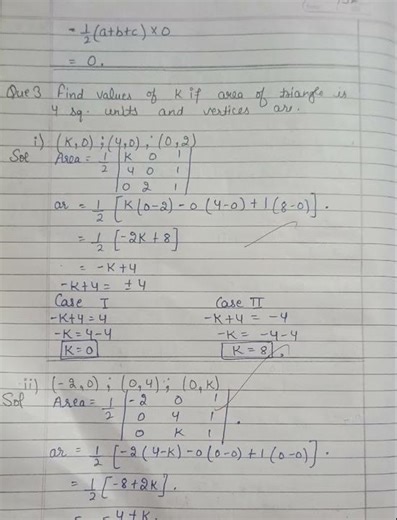 = 1/2 (a+b+c) × 0
= 0.
Que 3 Find values of K if area of triangle is
4 sq. units and vertices are.
i) (K,0) ; (4,0) ; (0,2)
Sol Area = 1/2 | K 0 1 |
| 4 0 1 |
| 0 2 1 |
ar = 1/2 [K(0-2) - 0(4-0) + 1(8-0)].
= 1/2 [-2K + 8]
= -K+4
-K+4 = ±4
Case I Case II
-K+4 = 4 -K+4 = -4
-K = 4-4 -K = -4-4
K=0 K = 8.
ii) (-2,0) ; (0,4) ; (0,K)
Sol Area = 1/2 | -2 0 1 |
| 0 4 1 | .
| 0 K 1 |
ar = 1/2 [-2(4-K) - 0(0-0) + 1(0-0)].
= 1/2 [-8+2K].
= -4+K.